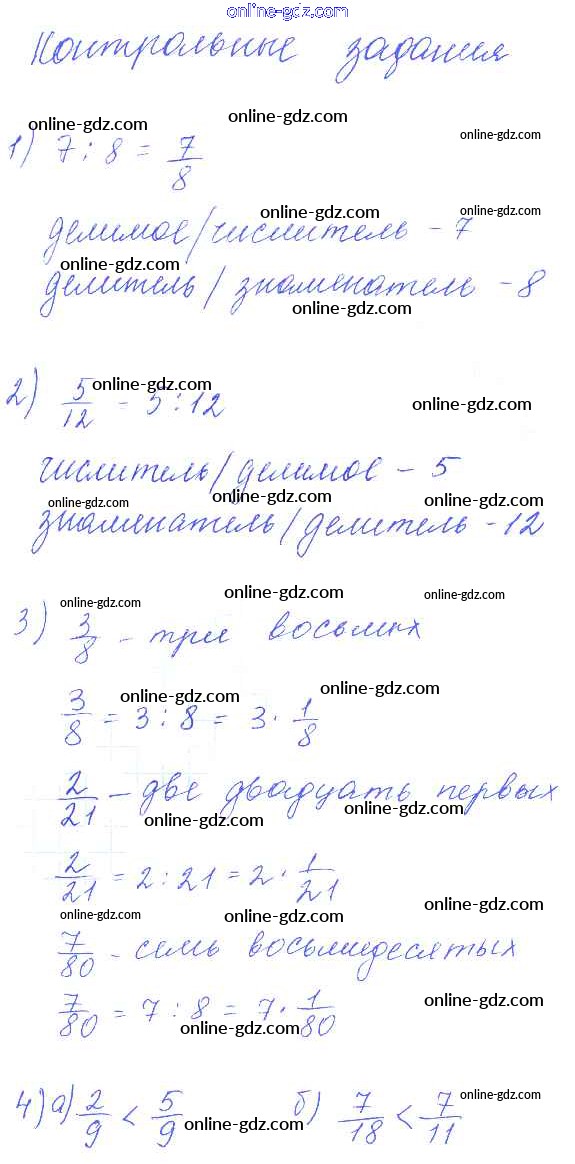 online-gdz.com
Контрольные задания
online-gdz.com online-gdz.com online-gdz.com
1) 7 : 8 = 7/8
online-gdz.com online-gdz.com
делимое/числитель - 7
online-gdz.com
делитель/знаменатель - 8
online-gdz.com
2) 5/12 = 5 : 12
online-gdz.com online-gdz.com
числитель/делимое - 5
online-gdz.com online-gdz.com online-gdz.com
знаменатель/делитель - 12
online-gdz.com online-gdz.com online-gdz.com
3) 3/8 - три восьмых
online-gdz.com online-gdz.com
3/8 = 3 : 8 = 3 · 1/8
2/21 - две двадцать первых
online-gdz.com online-gdz.com
2/21 = 2 : 21 = 2 · 1/21
online-gdz.com online-gdz.com online-gdz.com
7/80 - семь восьмидесятых
online-gdz.com
7/80 = 7 : 8 = 7 · 1/80
online-gdz.com
4) а) 2/9 < 5/9 б) 7/18 < 7/11
online-gdz.com online-gdz.com online-gdz.com